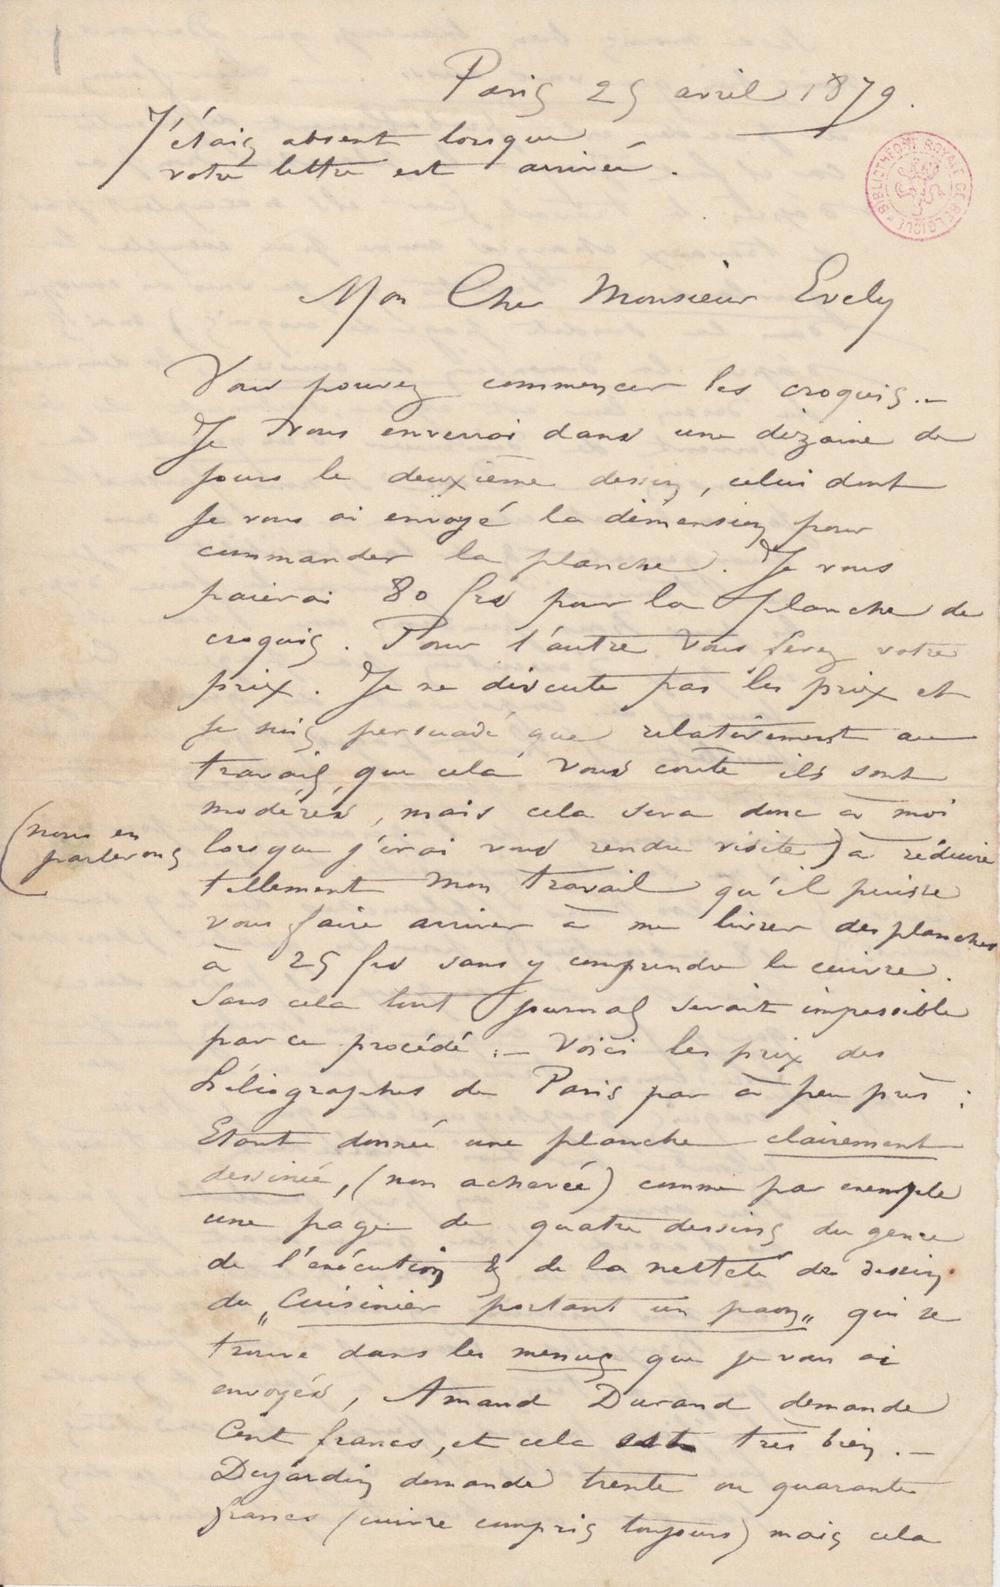 Paris 25 avril 1879.
J'étais absent lorsque
votre lettre est arrivée.
BIBLIOTHÈQUE ROYALE DE BELGIQUE
Mon Cher Monsieur Evely
Vous pouvez commencer les croquis.—
Je vous enverrai dans une dizaine de
jours le deuxième dessin, celui dont
je vous ai envoyé la dimension pour
commander la planche. Je vous
paierai 80 frs pour la planche de
croquis. Pour l'autre vous ferez votre
prix. Je ne discute pas les prix et
je suis persuadé que relativement au
travail, que cela vous coûte ils sont
modérés, mais cela sera donc à moi
(nous en
parlerons
lorsque j'irai vous rendre visite) à réduire
tellement mon travail qu'il puisse
vous faire arriver à me livrer des planches
à 25 frs sans y comprendre le cuivre.
Sans cela tout journal serait impossible
par ce procédé :— Voici les prix des
héliographes de Paris par à peu près :
Etant donnée une planche clairement
dessinée, (non achevée) comme par exemple
une page de quatre dessins du genre
de l'exécution & de la netteté de dessin
du „Cuisinier portant un paon„ qui se
trouve dans les menus que je vous ai
envoyés, Amand Durand demande
Cent francs, et cela très bien.—
Dujardin demande trente ou quarante
francs (cuivre compris toujours) mais cela